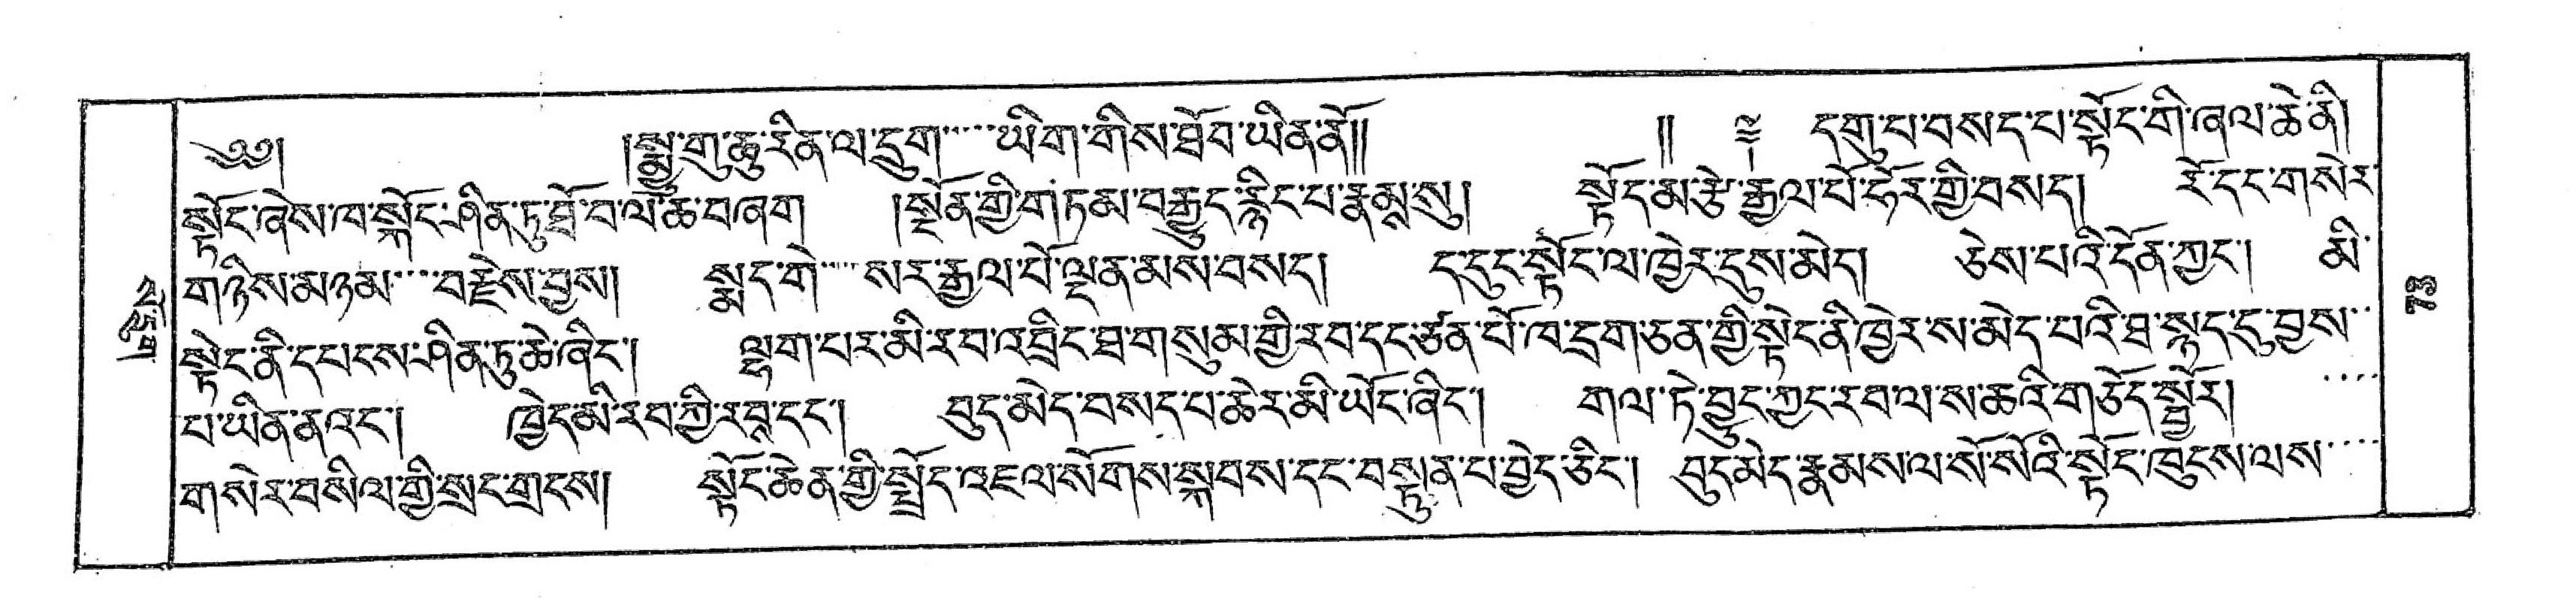 ༄༅། །སྨྱུ་གུ་ཆུ་རིན་ལ་དྲུག་་་་ཡིག་གིས་ཐོབ་ཡིན་ནོ།། །། ༈ དགུ་པ་བསད་པ་སྟོང་གི་ཞལ་ཆེ་ནི།
སྟོང་ཞེས་ཁ་སྐོང་ཤིན་ཏུ་ཐོ་བ་ལ་ཆ་བཞག །སྔོན་གྱི་གཏམ་བརྒྱུད་རྙིང་པ་རྣམས་སུ། སྟོད་མ་རྩེ་རྒྱལ་པོ་ཧོར་གྱི་བསད། རོ་དང་གསེར་
གཉིས་མཉམ་་་་བརྗེས་བྱས། སྨད་གེ་་་་སར་རྒྱལ་པོ་ལྡན་མས་བསད། ད་དུང་སྟོང་ལ་ཁྱེར་དུས་མེད། ཅེས་པའི་དོན་ཀྱང་། མི་
སྟེང་ནི་དཔངས་ཤིན་ཏུ་ཆེ་ཞིང་། ལྷག་པར་མི་རབ་འབྲིང་ཐ་གསུམ་གྱི་རབ་དང་བཙན་པོ་ཁ་དྲག་ཅན་གྱི་སྟེང་ནི་ཁྱེར་ས་མེད་པའི་ཐ་སྙད་དུ་བྱས་་
པ་ཡིན་ནའང་། ཁྱེད་མི་རབ་ཀྱི་རབ་དང་། བུད་མེད་བསད་པ་ཆེར་མི་ཡོང་ཞིང་། གལ་ཏེ་བྱུང་ཀྱང་རབ་ལ་ས་ཆའི་གཅོད་སྦྱོར། ་་་་
གསེར་བསིལ་གྱི་སྲང་གྲངས། སྟོང་ཆེན་གྱི་སྤྲོད་འཇལ་སོགས་སྐབས་དང་བསྟུན་པ་བྱེད་ཅིང་། བུད་མེད་རྣམས་ལ་སོ་སོའི་སྟོང་ཁུངས་ལས་་་་